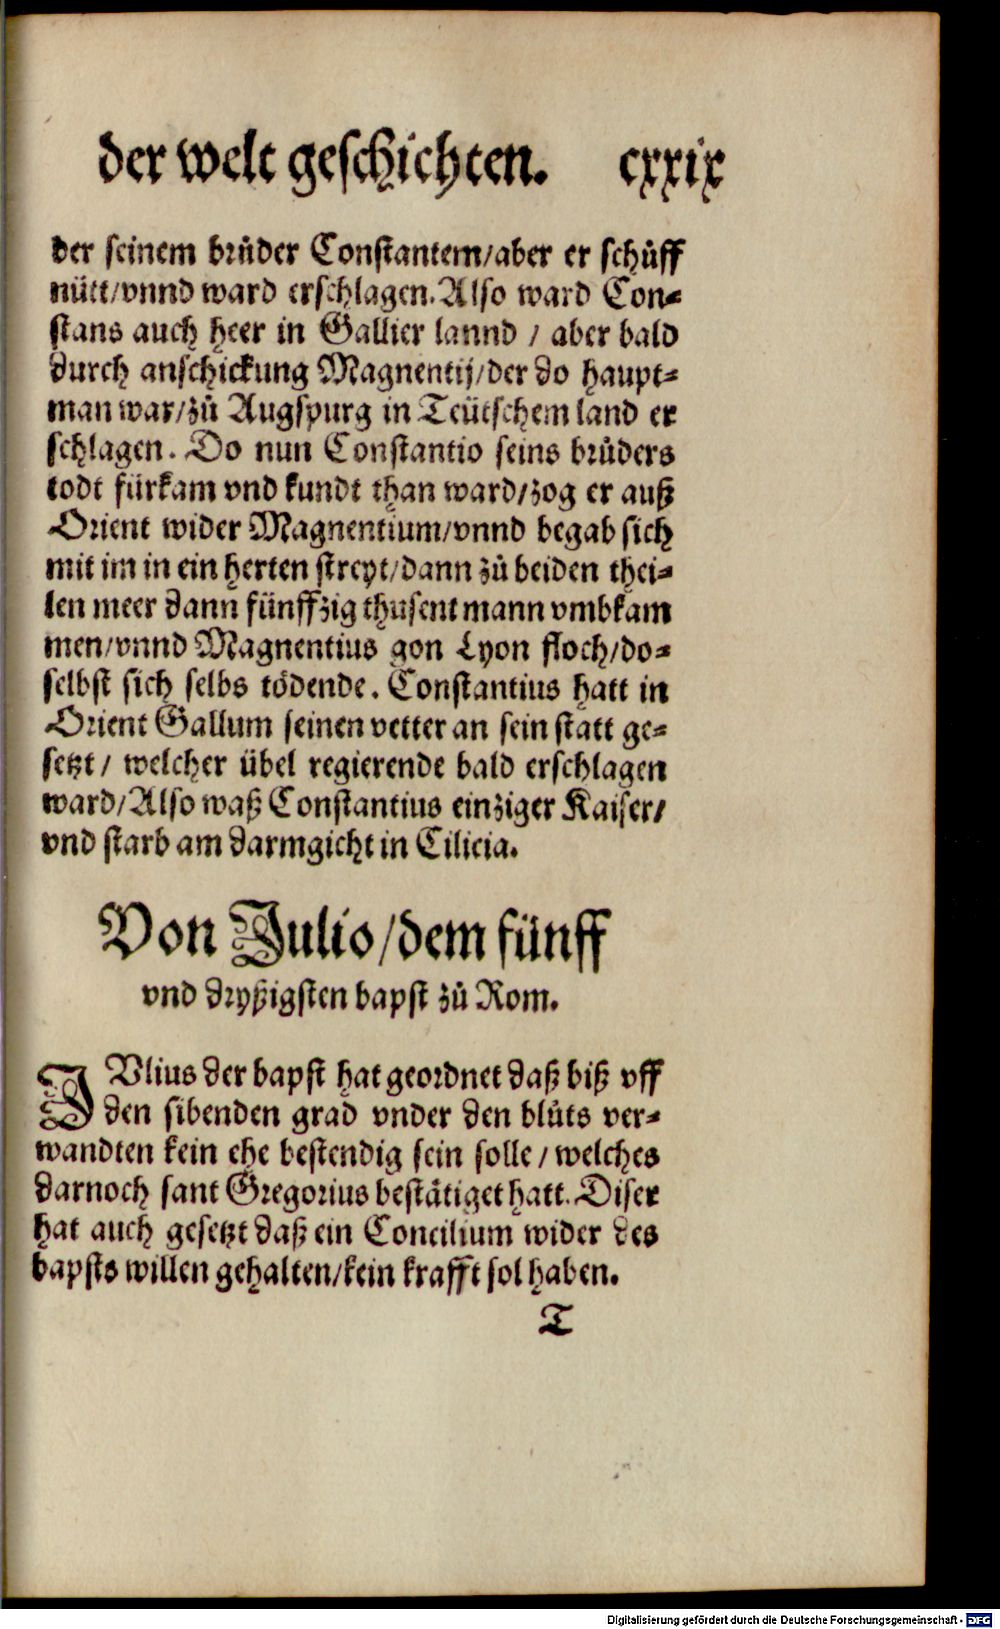 der welt geschichten. cxxix
der seinem brůder Constantem/aber er schůff
nütt/vnnd ward erschlagen. Also ward Con=
stans auch heer in Gallier lannd / aber bald
durch anschickung Magnentij/der do haupt=
man war/zů Augspurg in Teütschem land er
schlagen. Do nun Constantio seins brůders
todt fürkam vnd kundt than ward/zog er auß
Orient wider Magnentium/vnnd begab sich
mit im in ein herten streyt/dann zů beiden thei=
len meer dann fünffzig thusent mann vmbkam
men/vnnd Magnentius gon Lyon floch/do=
selbst sich selbs tödende. Constantius hatt in
Orient Gallum seinen vetter an sein statt ge=
setzt / welcher übel regierende bald erschlagen
ward/Also waß Constantius einziger Kaiser/
vnd starb am darmgicht in Cilicia.
Von Julio/dem fünff
vnd dryßigsten bapst zů Rom.
JVlius der bapst hat geordnet daß biß vff
den sibenden grad vnder den blůts ver=
wandten kein ehe bestendig sein solle / welches
darnoch sant Gregorius bestätiget hatt. Diser
hat auch gesetzt daß ein Concilium wider des
bapsts willen gehalten/kein krafft sol haben.
T
Digitalisierung gefördert durch die Deutsche Forschungsgemeinschaft - DFG